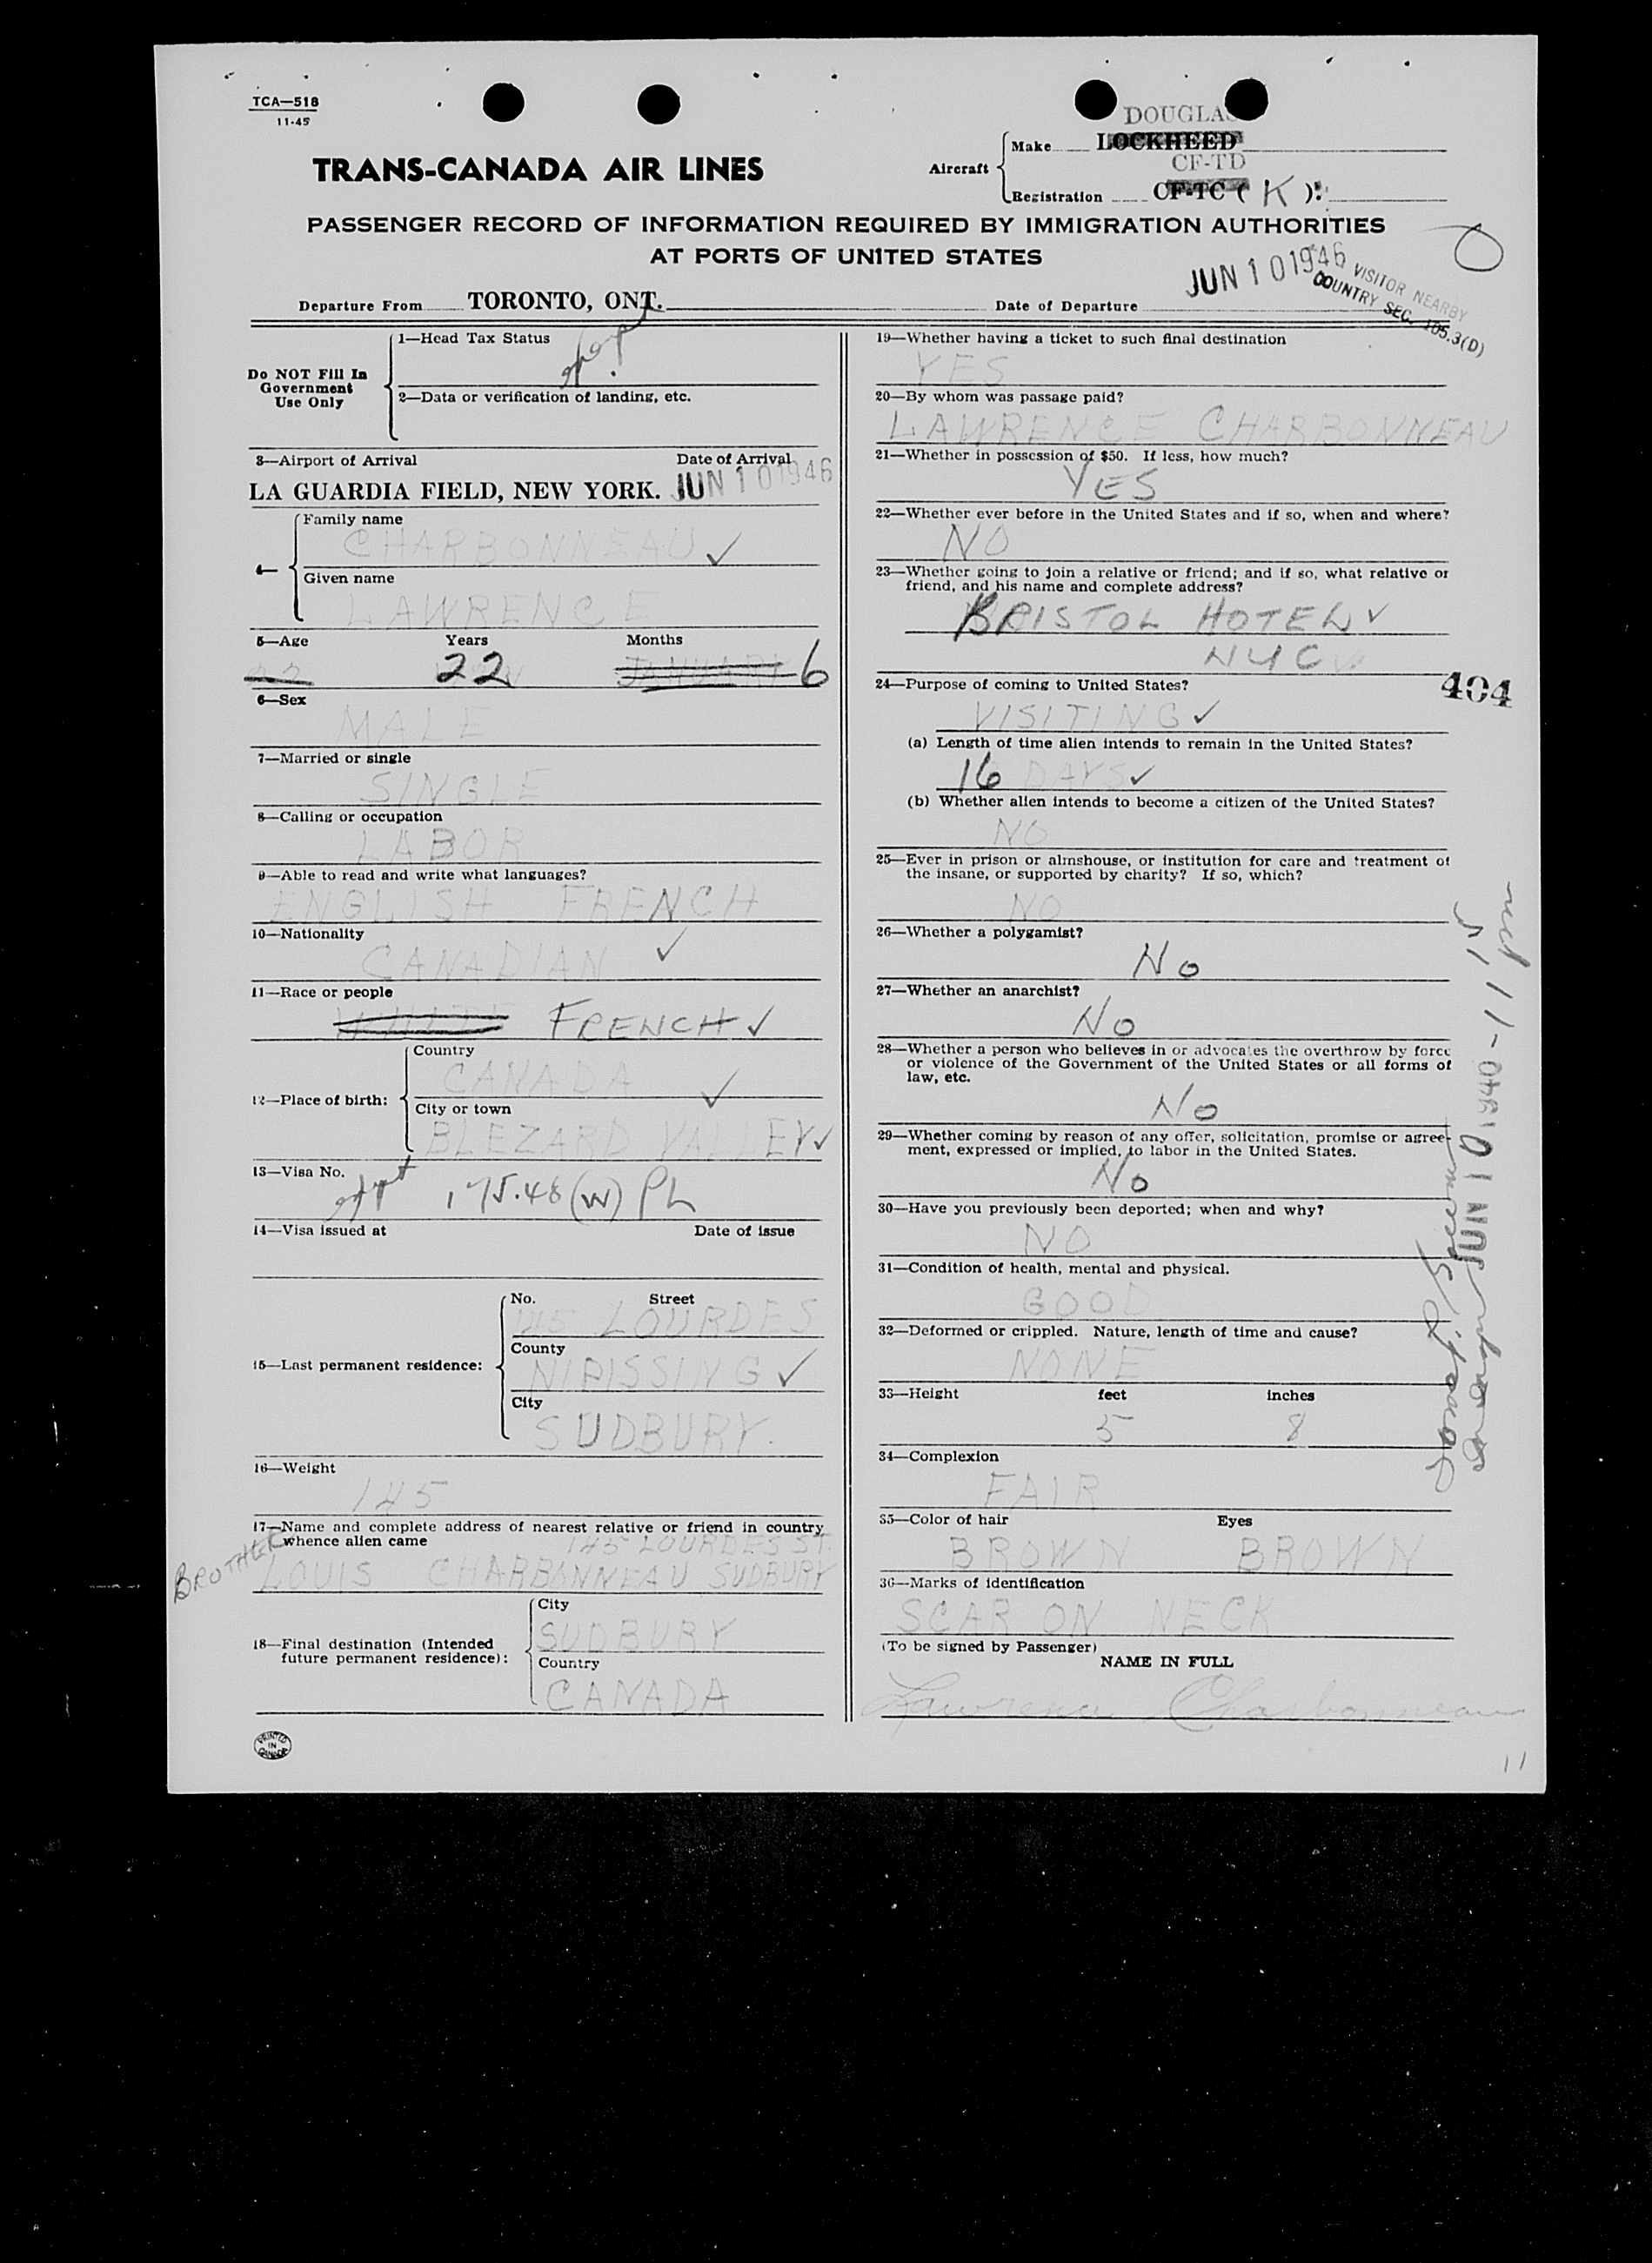 TCA—518
11-45
DOUGLAS
Aircraft
Make LOCKHEED
CF-TD
Registration CF-TC ( K ).
TRANS-CANADA AIR LINES
PASSENGER RECORD OF INFORMATION REQUIRED BY IMMIGRATION AUTHORITIES
AT PORTS OF UNITED STATES
JUN 10 1946
VISITOR NEARBY
COUNTRY SEC. 105.3(D)
Departure From TORONTO, ONT.
Date of Departure
Do NOT Fill In
Government
Use Only
1—Head Tax Status
2—Data or verification of landing, etc.
3—Airport of Arrival Date of Arrival
LA GUARDIA FIELD, NEW YORK. JUN 10 1946
4—
Family name
CHARBONNEAU ✓
Given name
LAWRENCE
5—Age Years Months
22 22 JANUARY 6
6—Sex
MALE
7—Married or single
SINGLE
8—Calling or occupation
LABOR
9—Able to read and write what languages?
ENGLISH FRENCH
10—Nationality
CANADIAN ✓
11—Race or people
WHITE FRENCH ✓
12—Place of birth:
Country
CANADA ✓
City or town
BLEZARD VALLEY ✓
13—Visa No.
175.48 (W) PL
14—Visa issued at Date of issue
15—Last permanent residence:
No. Street
145 LOURDES
County
NIPISSING ✓
City
SUDBURY.
16—Weight
145
17—Name and complete address of nearest relative or friend in country
whence alien came 145 LOURDES ST.
BROTHER LOUIS CHARBONNEAU SUDBURY
18—Final destination (Intended
future permanent residence):
City
SUDBURY
Country
CANADA
PRINTED
IN
CANADA
19—Whether having a ticket to such final destination
YES
20—By whom was passage paid?
LAWRENCE CHARBONNEAU
21—Whether in possession of $50. If less, how much?
YES
22—Whether ever before in the United States and if so, when and where?
NO
23—Whether going to join a relative or friend; and if so, what relative or
friend, and his name and complete address?
BRISTOL HOTEL ✓
NYC
404
24—Purpose of coming to United States?
VISITING ✓
(a) Length of time alien intends to remain in the United States?
16 DAYS ✓
(b) Whether alien intends to become a citizen of the United States?
NO
25—Ever in prison or almshouse, or institution for care and treatment of
the insane, or supported by charity? If so, which?
NO
26—Whether a polygamist?
No
27—Whether an anarchist?
No
28—Whether a person who believes in or advocates the overthrow by force
or violence of the Government of the United States or all forms of
law, etc.
No
29—Whether coming by reason of any offer, solicitation, promise or agree-
ment, expressed or implied, to labor in the United States.
No
30—Have you previously been deported; when and why?
NO
31—Condition of health, mental and physical.
GOOD
32—Deformed or crippled. Nature, length of time and cause?
NONE
33—Height feet inches
5 8
34—Complexion
FAIR
35—Color of hair Eyes
BROWN BROWN
36—Marks of identification
SCAR ON NECK
(To be signed by Passenger)
NAME IN FULL
Lawrence Charbonneau
JUN 10
11